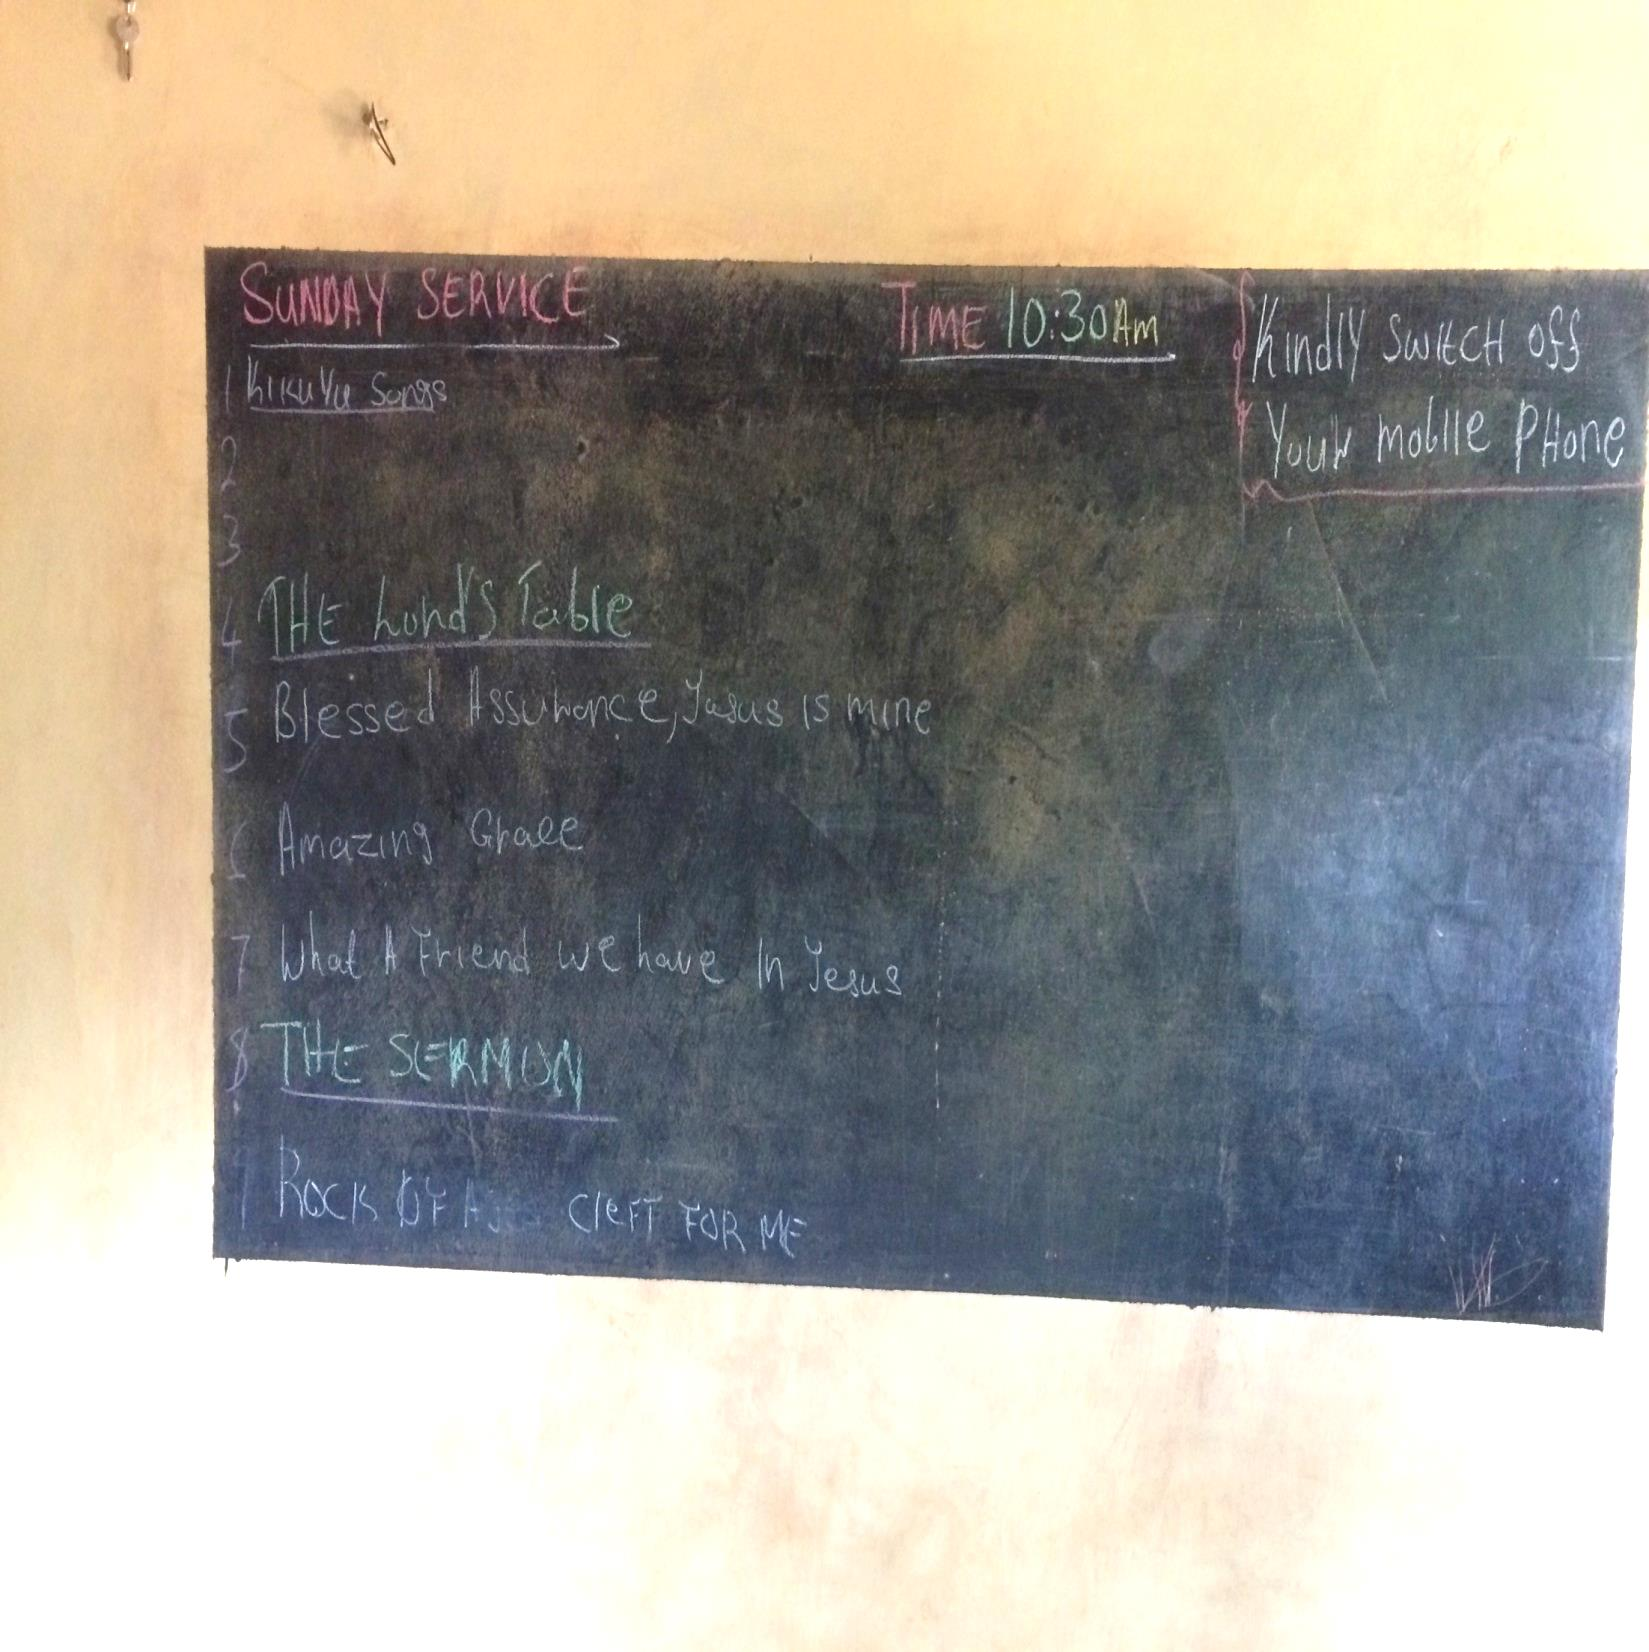 SUNDAY SERVICE
TIME 10:30Am
Kindly SWITCH Off
Your mobile PHone
1 Kikuyu Songs
2
3
4 THE Lord's Table
5 Blessed Assurance, Jesus is mine
6 Amazing Grace
7 What A Friend we have In Jesus
8 THE SERMON
9 ROCK OF Ages CleFT FOR ME